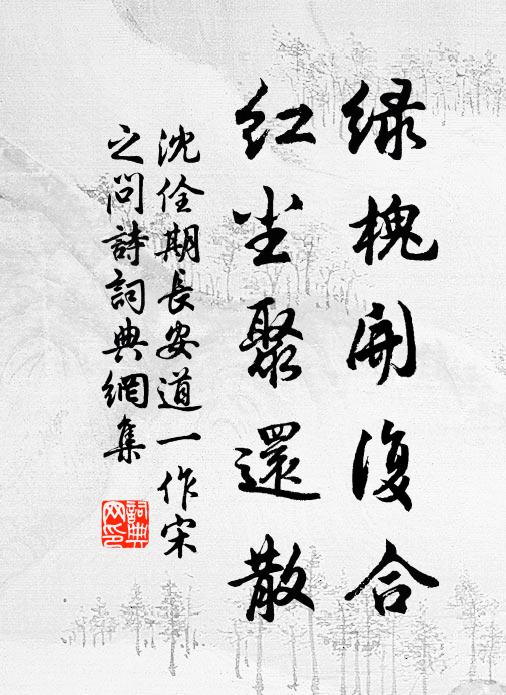 绿槐开復合
红尘聚還散
沈佺期長安道一作宋
之问詩詞典網集
詞典网印